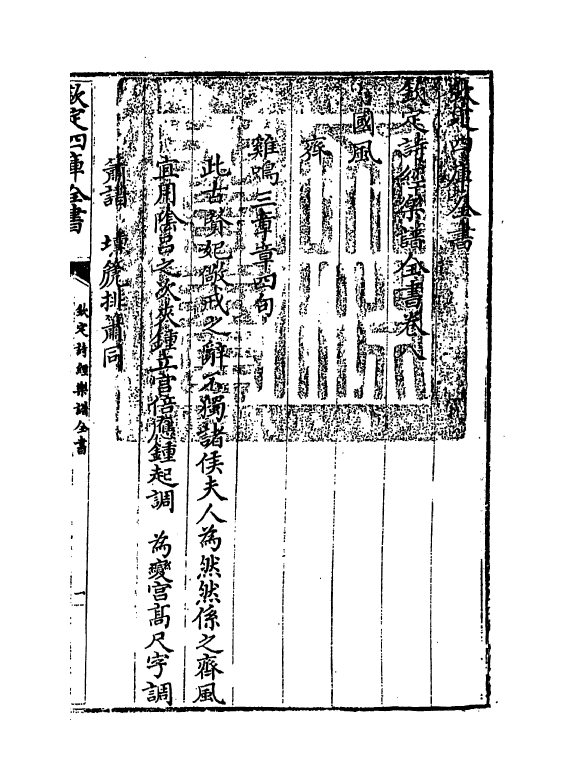 欽定四庫全書
欽定詩經樂譜全書卷八
國風
齊
雞鳴三章章四句
此古賢妃儆戒之辭不獨諸侯夫人為然然係之齊風
宜用陰呂之次夾鍾立宮倍應鍾起調 為變宮高尺字調
簫譜 壎篪排簫同
欽定四庫全書
欽定詩經樂譜全書
一